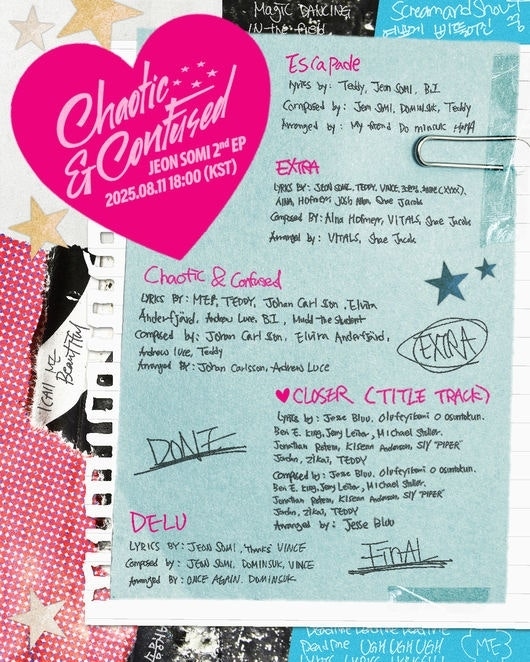 Magic DANCING
IN the field
Screamand Shout
Chaotic
& Confused
JEON SOMI 2nd EP
2025.08.11 18:00 (KST)
Escapade
Lyrics by: Teddy, Jeon SOMI, B.I
Composed by: Jeon SOMI, DOMINSUK, Teddy
Arranged by: My friend Do minsuk HAHA
EXTRA
LYRICS BY: JEON SOMI, TEDDY, VINCE,
AINA, Hofmeyr, Shae Jacobs
Composed BY: Alna Hofmeyr, VITALS, Shae Jacobs
Arranged by: VITALS, Shae Jacobs
Chaotic & Confused
LYRICS BY: TEDDY, Johan Carlsson, Elvira
Anderfjärd, Andrew Luce, B.I, Mudd the student
Composed by: Johan Carlsson, Elvira Anderfjärd,
Andrew Luce, Teddy
Arranged BY: Johan Carlsson, Andrew Luce
EXTRA
I CAll ME
Beautiful
CLOSER (TITLE TRACK)
Lyrics by: Jesse Bluu, Olufeyikemi O Osuntokun.
Ben E. King, Jerry Leiber, Michael Stoller.
Jonathan Rotem, Kisean Anderson, SLY "PIPER"
Jordan, Zikai, TEDDY
Composed by: Jesse Bluu, Olufeyikemi O Osuntokun.
Ben E. King, Jerry Leiber, Michael Stoller.
Jonathan Rotem, Kisean Anderson, SLY "PIPER"
Jordan, Zikai, TEDDY
Arranged by: Jesse Bluu
DONE
DELU
LYRICS BY: JEON SOMI, "thanks" VINCE
Composed by: JEON SOMI, DOMINSUK, VINCE
Arranged BY: ONCE AGAIN. DOMINSUK
FinAL
Deadline
UGH UGH UGH
(ME)